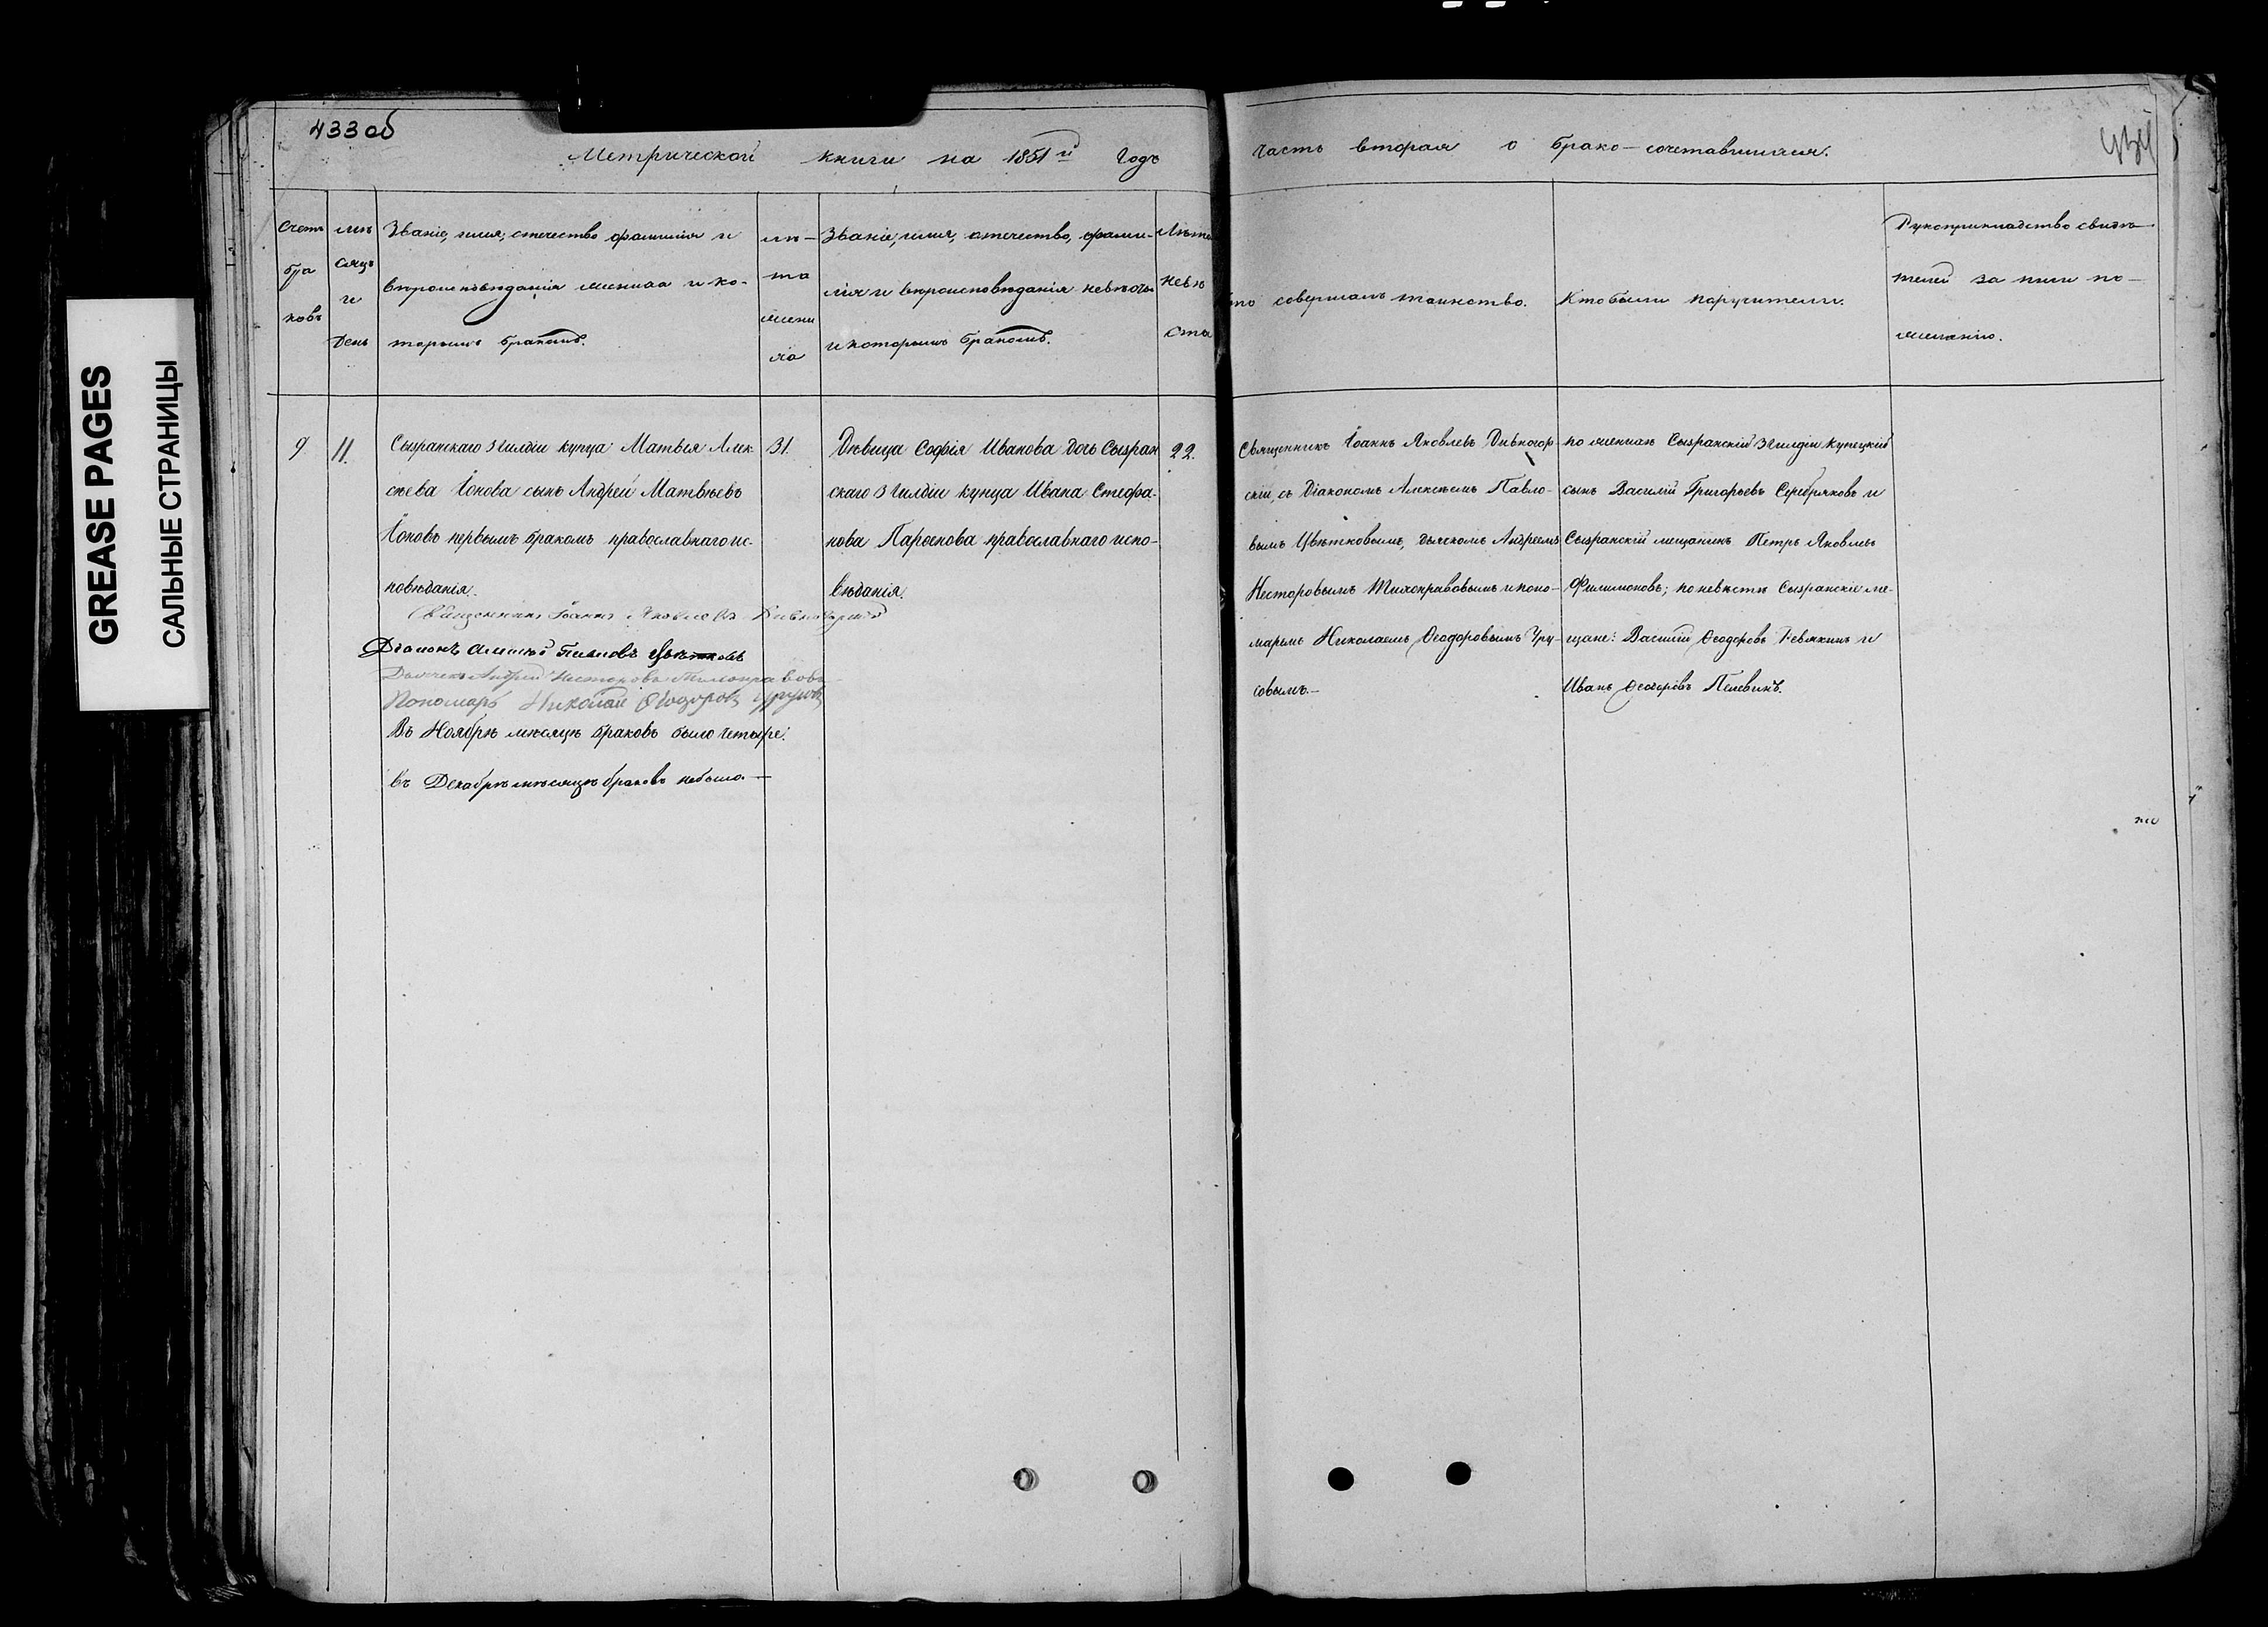 GREASE PAGES
САЛЬНЫЕ СТРАНИЦЫ
433 об
Метрической книги на 1851й Годъ
часть вторая о брако-сочетавшихся.
Счетъ
бра
ковъ
мѣ
сяцъ
и
день
Званіе, имя, отечество фамилія и
вѣроисповѣданія жениха и ко-
торымъ бракомъ.
лѣ-
та
жени
ха
Званіе, имя, отечество, фами-
лія и вѣроисповѣданія невѣсты
и которымъ бракомъ.
Лѣта
невѣ
сты
кто совершалъ таинство.
Кто были поручители.
Рукоприкладство свидѣ-
телей за ними по-
желанію.
9
11.
Сызранскаго 3 гилдіи купца Матвѣя Алек
сѣева Іонова сынъ Андрей Матвѣевъ
Іоновъ первымъ бракомъ православнаго ис-
повѣданія.
31.
Дѣвица Софія Иванова дочь Сызран
скаго 3 гилдіи купца Ивана Стефа-
нова Парѳенова православнаго испо-
вѣданія.
22.
Священникъ Іоаннъ Яковлевъ Дивногор-
скій, съ Діакономъ Алексѣемъ Павло-
вымъ Цвѣтковымъ, дьячкомъ Андреемъ
Несторовымъ Тихонравовымъ и поно-
маремъ Николаемъ Ѳеодоровымъ Уру-
совымъ.-
по женихѣ Сызранскій 3 гилдіи купецкій
сынъ Василій Григорьевъ Серебряковъ и
Сызранскій мещанинъ Петръ Яковлевъ
Филимоновъ; по невѣстѣ Сызранскіе ме-
щане: Василій Ѳеодоровъ Ревякинъ и
Иванъ Ѳеодоровъ Пелевинъ.
Священникъ Іоаннъ Яковлевъ Дивногорскій
Діаконъ Алексѣй Павловъ Цвѣтковъ
Дьячекъ Андрей Несторовъ Тихонравовъ
Пономарь Николай Ѳеодоровъ Урусовъ
Въ Ноябрѣ мѣсяцѣ браковъ было четыре.
въ Декабрѣ мѣсяцѣ браковъ небыло.-